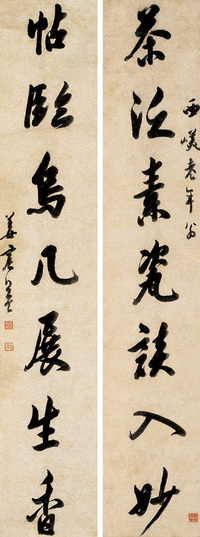 茶泛素瓷談入妙
西老年翁
帖臨烏几展生香
姜宸英